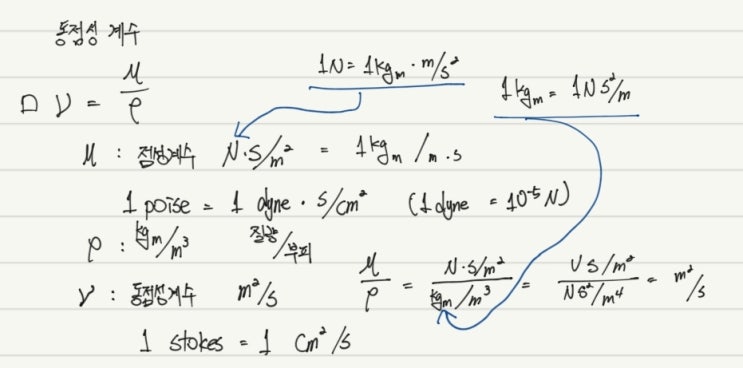 동점성 계수
□ ν = μ/ρ
1N = 1kgm · m/s²
1kgm = 1N S²/m
μ : 점성계수 N·S/m² = 1kgm/m·s
1 poise = 1 dyne · S/cm² (1 dyne = 10⁻⁵ N)
ρ : kgm/m³ 질량/부피
ν : 동점성계수 m²/s
μ/ρ = N·S/m² / kgm/m³ = N S/m² / NS²/m⁴ = m²/s
1 stokes = 1 Cm²/s